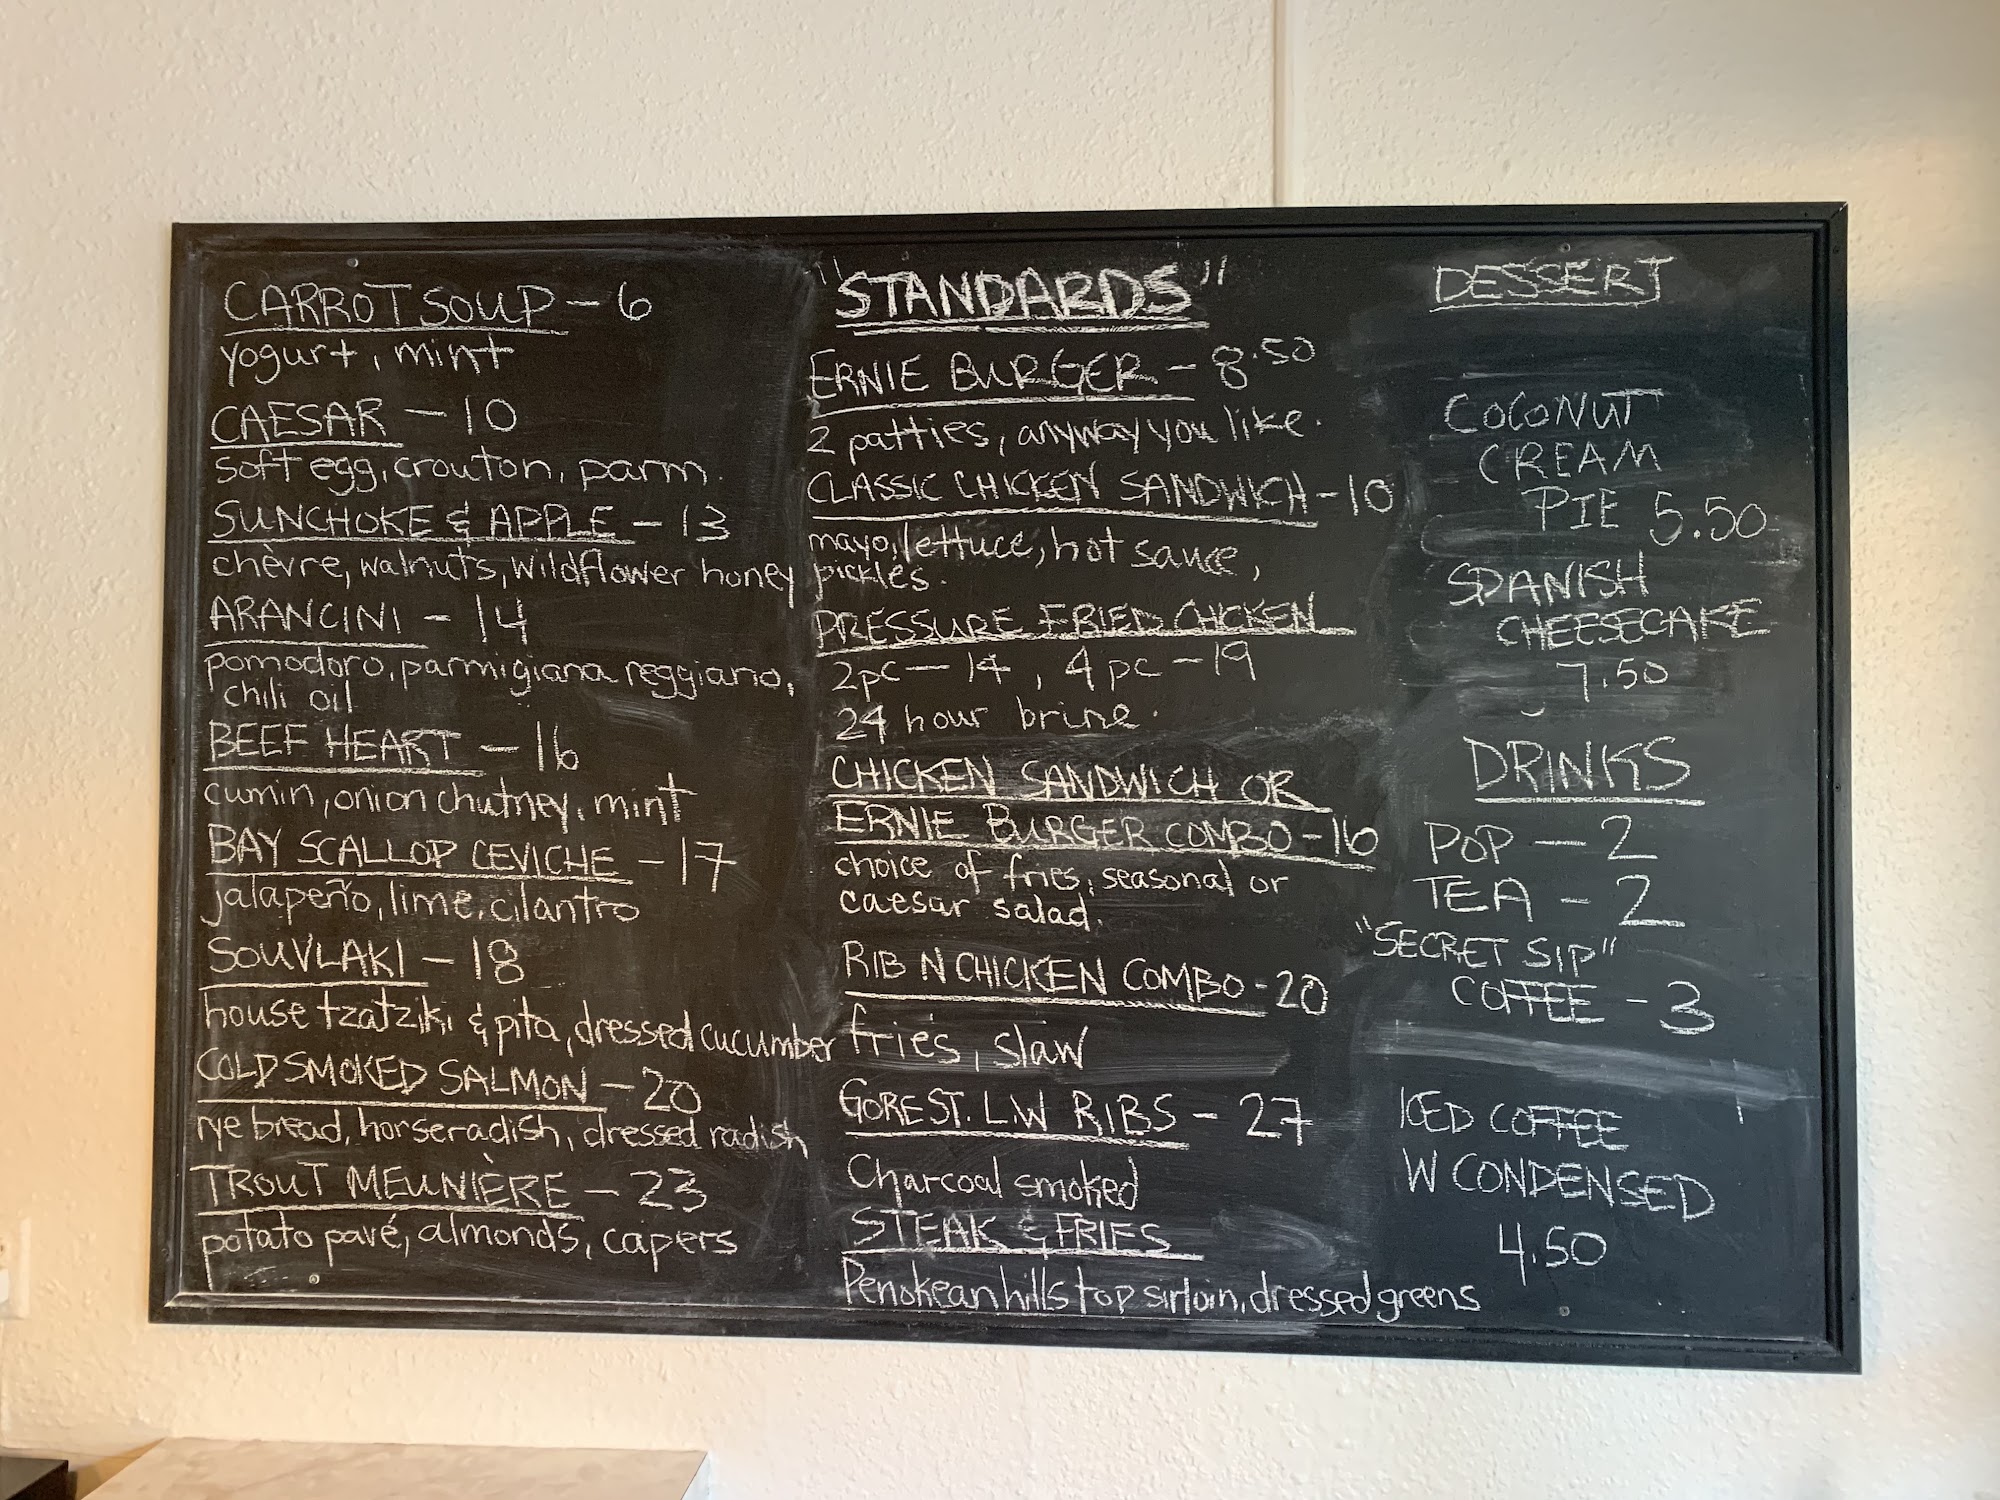 CARROT SOUP - 6
yogurt, mint
CAESAR - 10
soft egg, crouton, parm.
SUNCHOKE & APPLE - 13
chèvre, walnuts, wildflower honey
ARANCINI - 14
pomodoro, parmigiana reggiano,
chili oil
BEEF HEART - 16
cumin, onion chutney, mint
BAY SCALLOP CEVICHE - 17
jalapeño, lime, cilantro
SOUVLAKI - 18
house tzatziki & pita, dressed cucumber
COLD SMOKED SALMON - 20
rye bread, horseradish, dressed radish
TROUT MEUNIÈRE - 23
potato pavé, almonds, capers
"STANDARDS"
ERNIE BURGER - 8.50
2 patties, anyway you like.
CLASSIC CHICKEN SANDWICH - 10
mayo, lettuce, hot sauce,
pickles.
PRESSURE FRIED CHICKEN
2pc - 14, 4pc - 19
24 hour brine.
CHICKEN SANDWICH OR
ERNIE BURGER COMBO - 16
choice of fries, seasonal or
caesar salad.
RIB N CHICKEN COMBO - 20
fries, slaw
GORE ST. L.W RIBS - 27
Charcoal smoked
STEAK & FRIES
Penokean hills top sirloin, dressed greens
DESSERT
COCONUT
CREAM
PIE 5.50
SPANISH
CHEESECAKE
7.50
DRINKS
POP - 2
TEA - 2
"SECRET SIP"
COFFEE - 3
ICED COFFEE
W CONDENSED
4.50